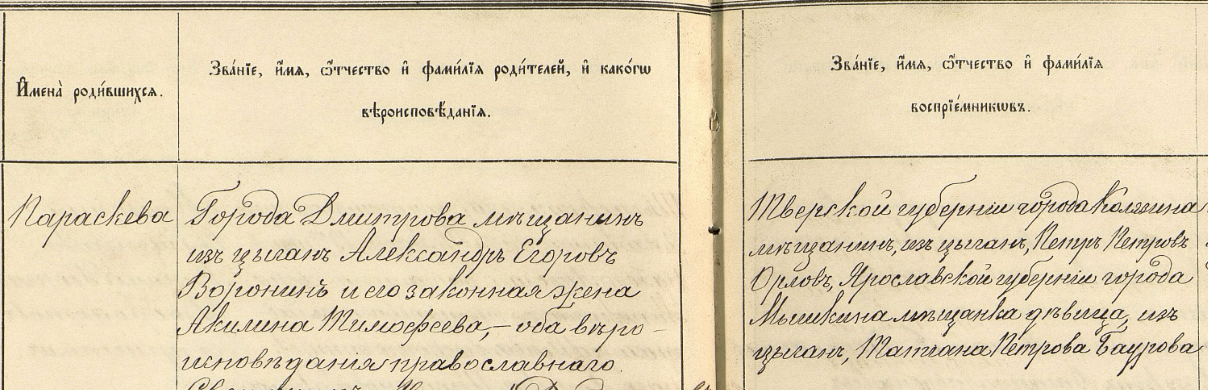 И҆мена̀ роди́вшихсѧ.
Зва́нїе, и҆́мѧ, ѻ҆́тчество и҆ фами́лїѧ роди́телей, и҆ како́гѡ
вѣроисповѣ́данїѧ.
Зва́нїе, и҆́мѧ, ѻ҆́тчество и҆ фами́лїѧ
воспрїе́мникѡвъ.
Параскева
Города Дмитрова мѣщанинъ
изъ цыган Александръ Егоровъ
Воронинъ и его законная жена
Акилина Тимофеева, – оба вѣро-
исповѣдания православнаго.
Тверской губернiи города Калязина
мѣщанин, изъ цыган, Петръ Петровъ
Орловъ, Ярославской губернiи города
Мышкина мѣщанка дѣвица, изъ
цыган, Татиана Петрова Баурова